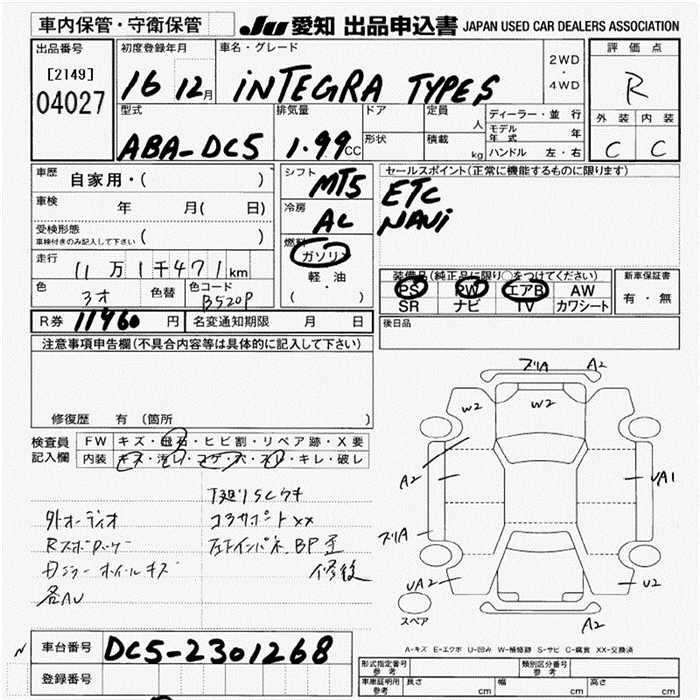 車内保管・守衛保管 JU 愛知 出品申込書 JAPAN USED CAR DEALERS ASSOCIATION
出品番号 初度登録年月 車名・グレード 評価点
[2149] 16 12月 iNTEGRA TYPES 2WD・4WD R
04027 型式 排気量 ドア 定員 人 ディーラー・並行 外装 内装
ABA-DC5 1.99CC 形状 積載 kg モデル年式 年 C C
ハンドル 左・右
車歴 自家用・( ) シフト MT5 セールスポイント(正常に機能するものに限ります)
車検 年 月( 日) 冷房 AC ETC
受検形態 車検付きのみ記入して下さい ( ) 燃料 NAVi
走行 11万1千471km ガソリン
軽・油
( ・ )
装備品(純正品に限り○をつけてください) 新車保証書
色 色替 色コード B520P PS PW エアB AW 有・無
SR ナビ TV カワシート
R券 11960円 名変通知期限 月 日 後日品
注意事項申告欄(不具合内容等は具体的に記入して下さい)
修復歴 有 (箇所 )
検査員記入欄 FW キズ・飛石・ヒビ割・リペア跡・X要
内装 キズ・汚レ・コゲ・穴・スレ・キレ・破レ
外オーディオ コアサポートXX
各AU 修後
A2
W2 W2
A2 UA1
UA2 U2
スペア A2
A-キズ E-エクボ U-凹み W-補修跡 S-サビ C-腐食 XX-交換済
車台番号 DC5-2301268
登録番号
形式指定番号 参考 類別区分番号 参考
車庫証明用 参考 長さ cm 幅 cm 高さ cm